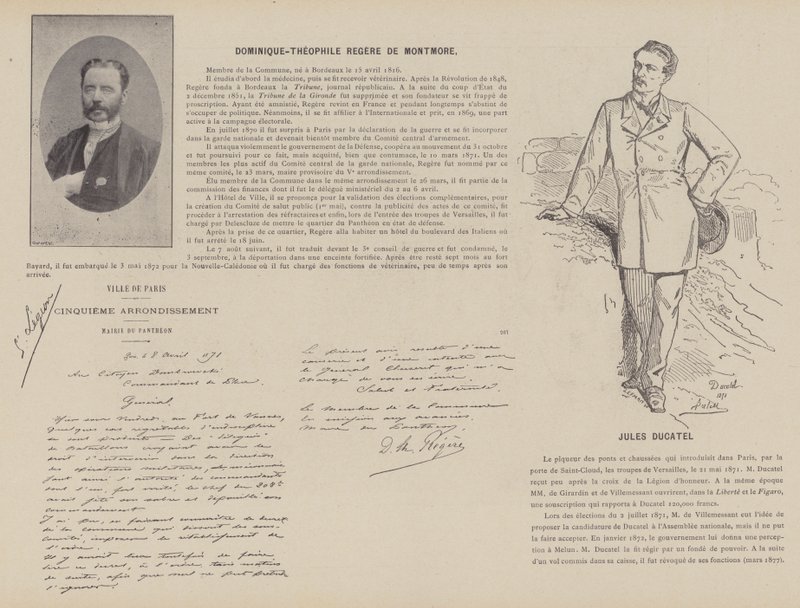 DOMINIQUE-THÉOPHILE REGÈRE DE MONTMORE,
Membre de la Commune, né à Bordeaux le 15 avril 1816.
Il étudia d'abord la médecine, puis se fit recevoir vétérinaire. Après la Révolution de 1848,
Regère fonda à Bordeaux la Tribune, journal républicain. A la suite du coup d'État du
2 décembre 1851, la Tribune de la Gironde fut supprimée et son fondateur se vit frappé de
proscription. Ayant été amnistié, Regère revint en France et pendant longtemps s'abstint de
s'occuper de politique. Néanmoins, il se fit affilier à l'Internationale et prit, en 1869, une part
active à la campagne électorale.
En juillet 1870 il fut surpris à Paris par la déclaration de la guerre et se fit incorporer
dans la garde nationale et devenait bientôt membre du Comité central d'armement.
Il attaqua violemment le gouvernement de la Défense, coopéra au mouvement du 31 octobre
et fut poursuivi pour ce fait, mais acquitté, bien que contumace, le 10 mars 1871. Un des
membres les plus actif du Comité central de la garde nationale, Regère fut nommé par ce
même comité, le 23 mars, maire provisoire du Ve arrondissement.
Élu membre de la Commune dans le même arrondissement le 26 mars, il fit partie de la
commission des finances dont il fut le délégué ministériel du 2 au 6 avril.
A l'Hôtel de Ville, il se prononça pour la validation des élections complémentaires, pour
la création du Comité de salut public (1er mai), contre la publicité des actes de ce comité, fit
procéder à l'arrestation des réfractaires et enfin, lors de l'entrée des troupes de Versailles, il fut
chargé par Delescluze de mettre le quartier du Panthéon en état de défense.
Après la prise de ce quartier, Regère alla habiter un hôtel du boulevard des Italiens où
il fut arrêté le 18 juin.
Le 7 août suivant, il fut traduit devant le 3e conseil de guerre et fut condamné, le
3 septembre, à la déportation dans une enceinte fortifiée. Après être resté sept mois au fort
Bayard, il fut embarqué le 3 mai 1872 pour la Nouvelle-Calédonie où il fut chargé des fonctions de vétérinaire, peu de temps après son
arrivée.
5e Légion
VILLE DE PARIS
CINQUIÈME ARRONDISSEMENT
MAIRIE DU PANTHÉON
8 Avril 1871
Au Citoyen Dombrowski
Commandant de Place.
Général,
Hier soir Vendredi, au Fort de Vanves,
quelques cas regrettables d'indiscipline
se sont produits — Des "délégués"
de Bataillons croyant avoir le
droit d'intervenir dans la direction
des opérations militaires,
l'autorité des commandants
le chef du 208e
avait jeté son sabre et
commandement
le décret
de la Commune qui dissout des sous-
Comités, le rétablissement de
l'ordre.
Il y aurait lieu toutefois de faire
lire ce décret, à l'ordre, trois matins
de suite, afin que nul ne put
l'ignorer.
207
Le présent avis resulte d'une
causerie et d'une entente avec
le Général Cluseret qui m'a
chargé de vous en écrire.
Salut et Fraternité.
Le Membre de la Commune
en mission aux
Mairie du Panthéon
D. Th. Régère
Ducatel
1871
JULES DUCATEL
Le piqueur des ponts et chaussées qui introduisit dans Paris, par la
porte de Saint-Cloud, les troupes de Versailles, le 21 mai 1871. M. Ducatel
reçut peu après la croix de la Légion d'honneur. A la même époque
MM. de Girardin et de Villemessant ouvrirent, dans la Liberté et le Figaro,
une souscription qui rapporta à Ducatel 120,000 francs.
Lors des élections du 2 juillet 1871, M. de Villemessant eut l'idée de
proposer la candidature de Ducatel à l'Assemblée nationale, mais il ne put
la faire accepter. En janvier 1872, le gouvernement lui donna une percep-
tion à Melun. M. Ducatel la fit régir par un fondé de pouvoir. A la suite
d'un vol commis dans sa caisse, il fut révoqué de ses fonctions (mars 1877).